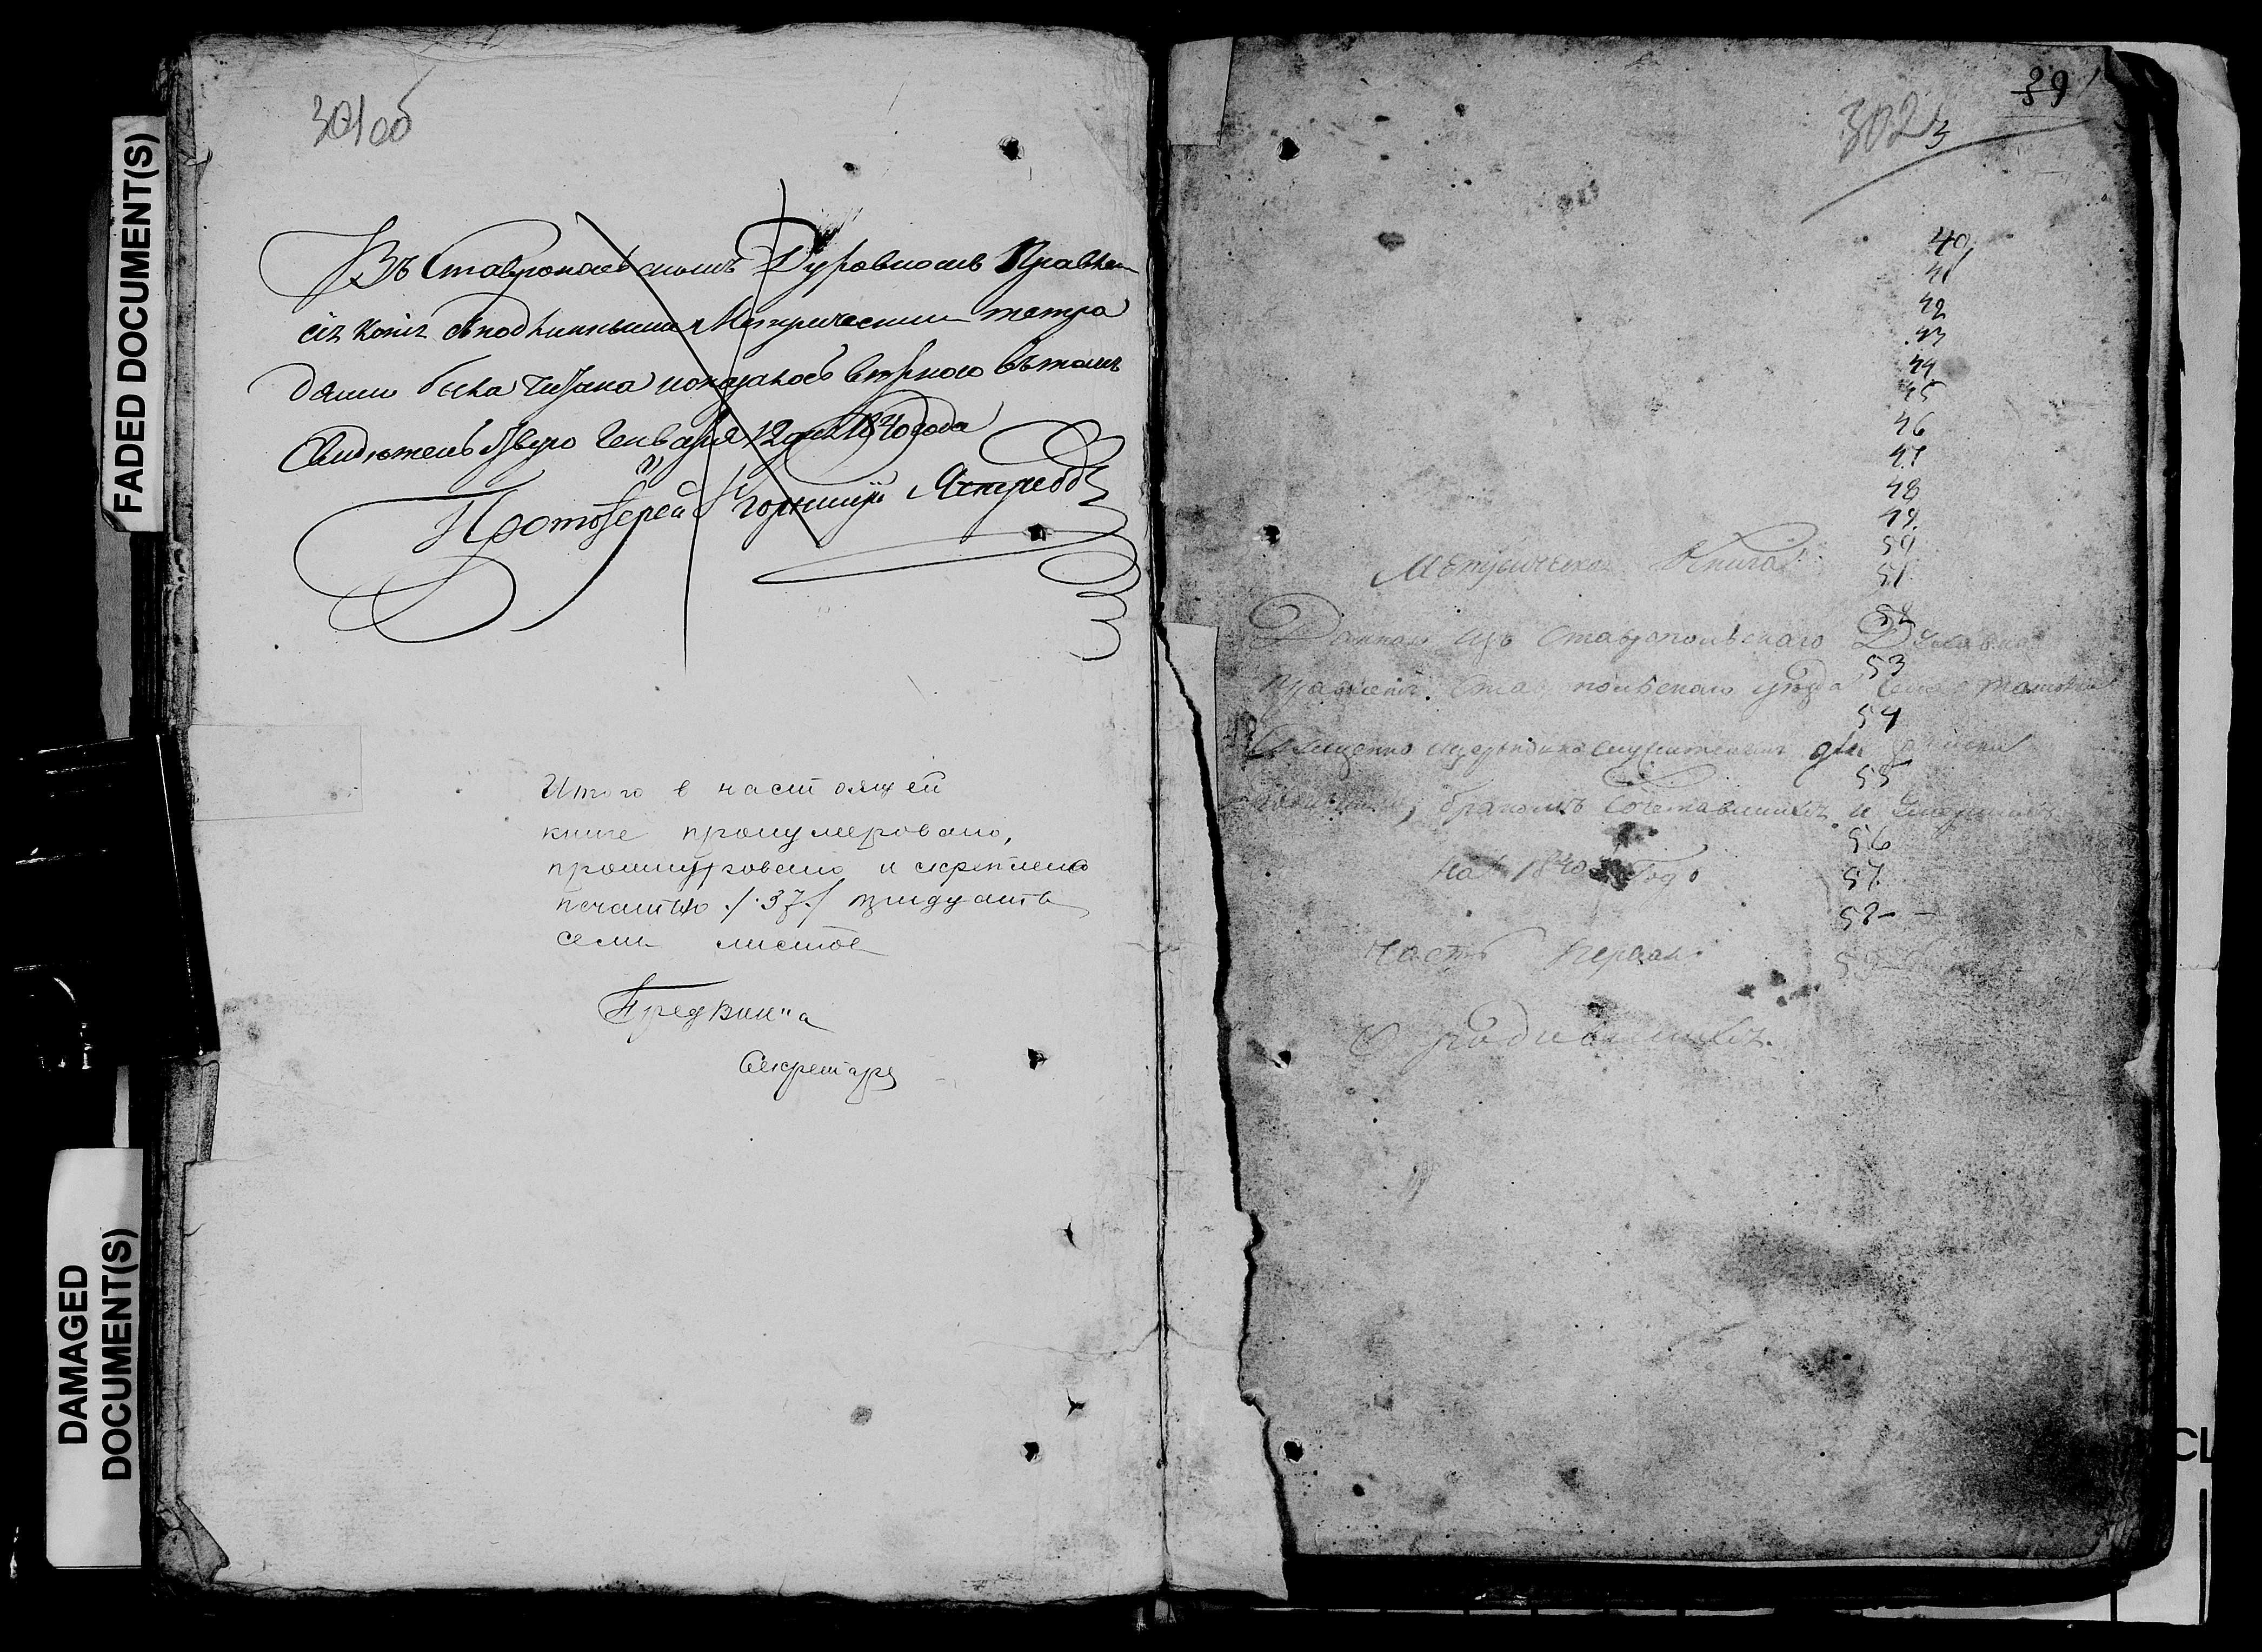 FADED DOCUMENT(S)
DAMAGED
DOCUMENT(S)
301об
Въ Ставропольскомъ Духовномъ Правлен
сія копія съ подлинными Метрическими тетра
дями была читана и оказалось вѣрною въ томъ
Свидѣтельствую Генваря 12 дня 1840 года
Протоіерей
Итого в настоящей
книге пронумеровано,
прошнуровано и скреплено
печатью /.37./ тридцать
семь листов
Секретарь
39
302
40
41
42
43
44
45
46
47
48
49
50
51
Метрическая Книга
52
Данная изъ Ставропольскаго Духовнаго
53
Правленія Ставропольскаго уѣзда Села
54
Священно церковно служителямъ для записки
55
родившихся, бракомъ Сочетавшихся и Умершихъ
56
на 1840й Годъ
57
58
Часть первая
59
О родившихся.
CL